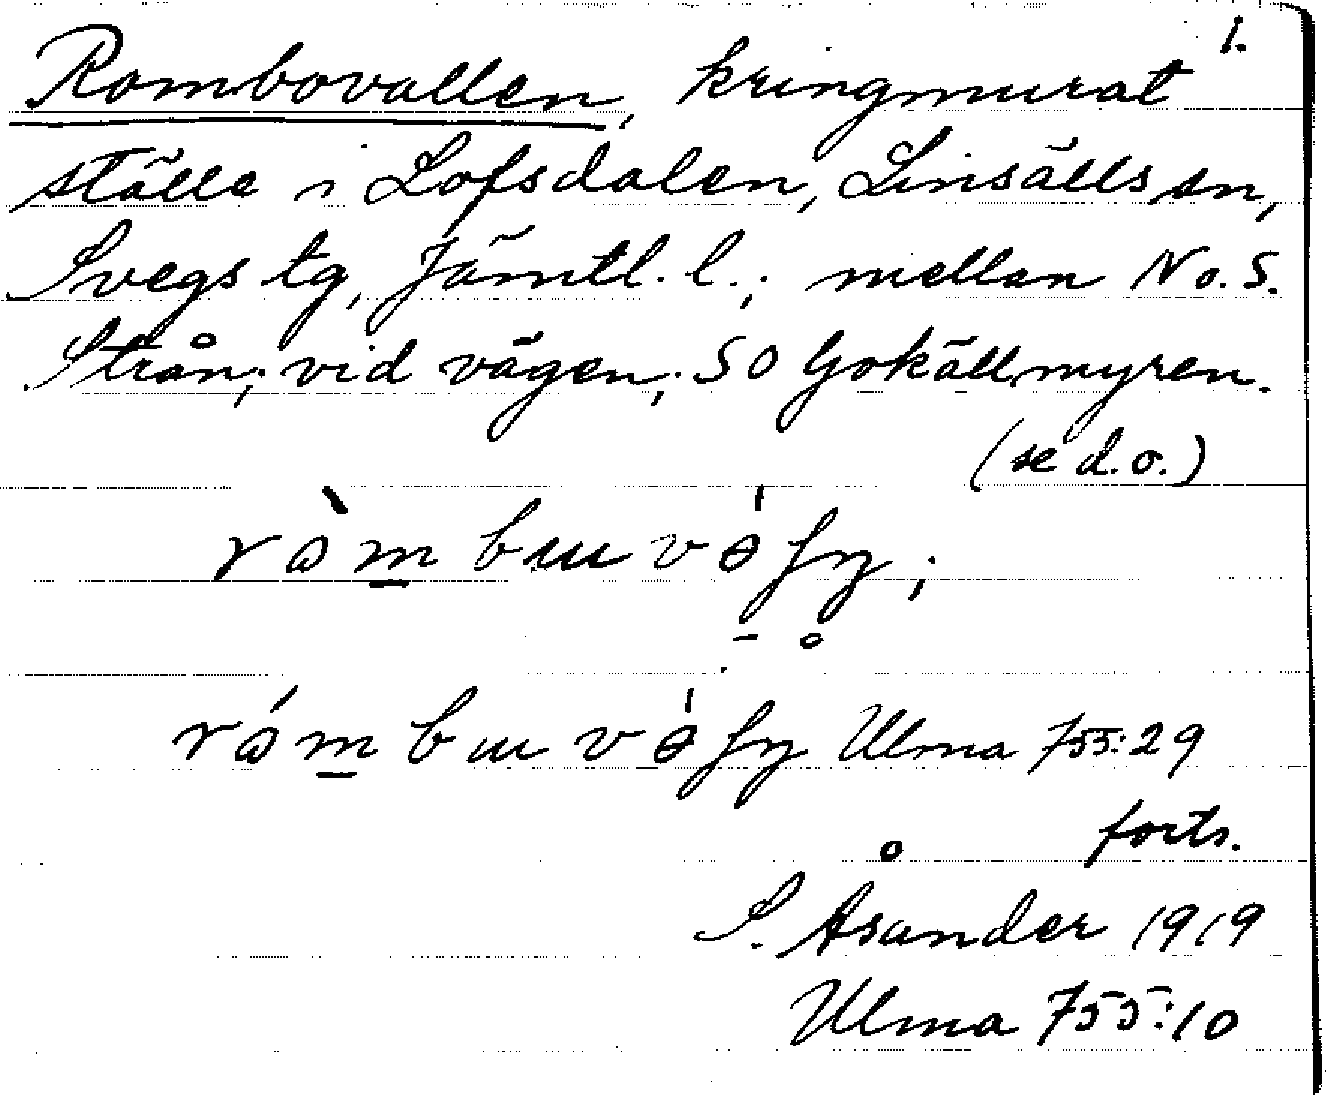 1.
Rombovallen, kringmurat
ställe i Lofsdalen, Linsälls sn,
Svegs tg, Jämtl. l.; mellan N o. S.
Strån; vid vägen; SO Gokällmyren.
(se d.o.)
ròm bɯ vɵ́ ʃn̥;
róm bɯ vɵ́ ʃn Ulma 755:29
forts.
S. Åsander 1919
Ulma 755:10